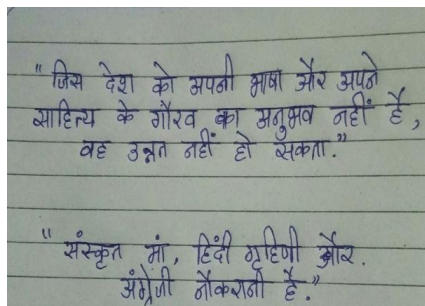 "जिस देश को अपनी भाषा और अपने
साहित्य के गौरव का अनुभव नहीं है,
वह उन्नत नहीं हो सकता."
"संस्कृत मां, हिंदी गृहिणी और.
अंग्रेजी नौकरानी है."